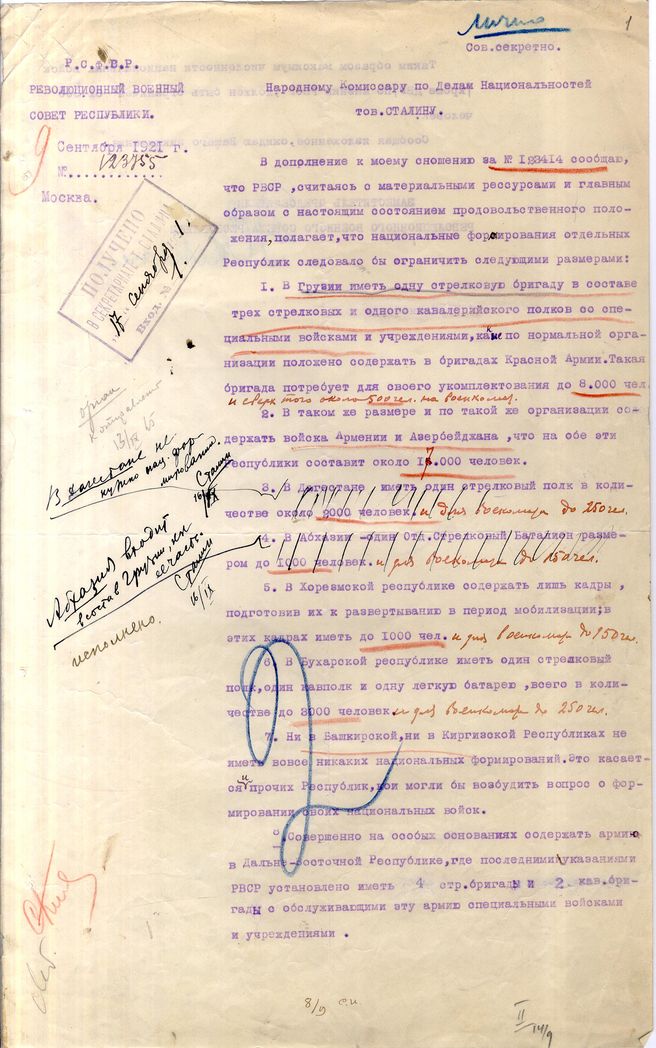 Лично
1
Сов.секретно.
Р.С.Ф.В.Р.
РЕВОЛЮЦИОННЫЙ ВОЕННЫЙ
СОВЕТ РЕСПУБЛИКИ.
9 Сентября 1921 г.
№ 123755
Москва.
Народному Комиссару по Делам Национальностей
тов.СТАЛИНУ.
ПОЛУЧЕНО
В СЕКРЕТАРИАТЕ т. СТАЛИНА
17 сентября
Вход. №
В дополнение к моему сношению за № 123414 сообщаю,
что РВСР ,считаясь с материальными рессурсами и главным
образом с настоящим состоянием продовольственного поло-
жения,полагает,что национальные формирования отдельных
Республик следовало бы ограничить следующими размерами:
I. В Грузии иметь одну стрелковую бригаду в составе
трех стрелковых и одного кавалерийского полков со спе-
циальными войсками и учреждениями,какие по нормальной орга-
низации положено содержать в бригадах Красной Армии.Такая
бригада потребует для своего укомплектования до 8.000 чел.
и сверх того около 500 чел. на военкомат.
2. В таком же размере и по такой же организации со-
держать войска Армении и Азербейджана ,что на обе эти
Республики составит около 17.000 человек.
3. В Дагестане иметь один стрелковый полк в коли-
честве около 2000 человек. и для военкомата до 250 чел.
4. В Абхазии -один Отд.Стрелковый Баталион разме-
ром до 1000 человек. и для военкомата до 150 чел.
5. В Хорезмской республике содержать лишь кадры ,
подготовив их к развертыванию в период мобилизации;в
этих кадрах иметь до 1000 чел. и для военкомата до 250 чел.
6. В Бухарской республике иметь один стрелковый
полк,один кавполк и одну легкую батарею ,всего в коли-
честве до 3000 человек. и для военкомата до 250 чел.
7. Ни в Башкирской,ни в Киргизской Республиках не
иметь вовсе никаких национальных формирований.Это касает-
ся и прочих Республик,кои могли бы возбудить вопрос о фор-
мировании своих национальных войск.
8.Совершенно на особых основаниях содержать армию
в Дальне-Восточной Республике,где последними указаниями
РВСР установлено иметь 4 стр.бригады и 2 кав.бри-
гады с обслуживающими эту армию специальными войсками
и учреждениями .
В Дагестане не
нужно нац. фор-
мирований.
Сталин
16/IX
Абхазия входит
в состав Грузии
Сталин
16/IX
исполнено.
8/9 с.и.
II
14/9